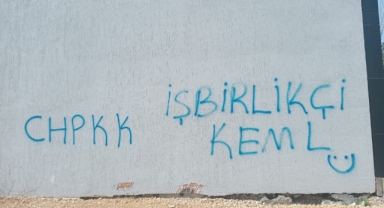 CHPKK
İŞBİRLİKÇİ
KEML